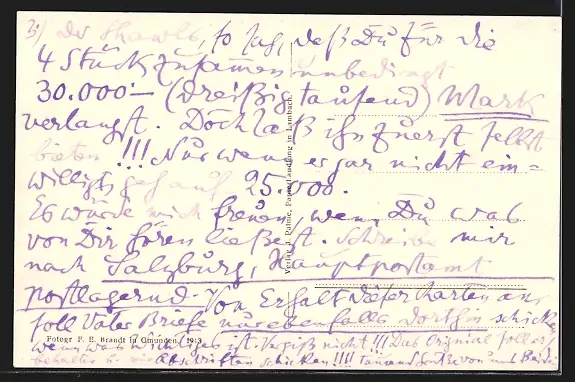 3) der Shawls, so sag, daß Du für die
4 Stück zusammen unbedingt
30.000'— (dreißigtausend) Mark
verlangst. Doch laß ihn zuerst selbst
bieten !!! Nur wenn er gar nicht ein=
willigt, geh auf 25.000.
Es würde mich freuen, wenn Du was
von Dir hören ließest. Schreibe mir
nach Salzburg, Hauptpostamt
postlagernd. Von Erhalt dieser Karten an,
soll Vater Briefe nur ebenfalls dorthin schicken
wenn was wichtiges ist. Vergiß nicht!!! Das Original soll er
behalten u. mir Abschriften schicken!!!! Tausend von und
Verlag J. Palme, Papierhandlung in Lambach.
Fotogr F. E. Brandt in Gmunden, 1913